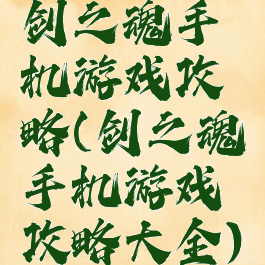 剑之魂手
机游戏攻
略(剑之魂
手机游戏
攻略大全)